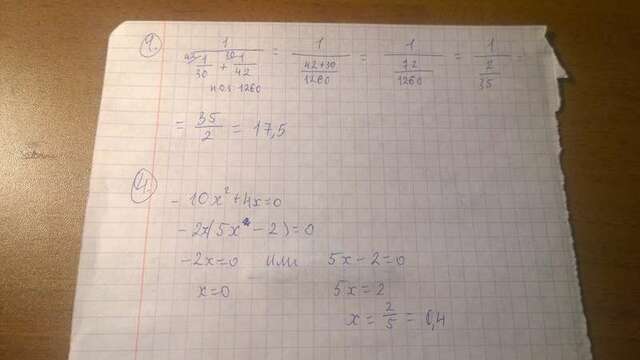 1. 1/(42 1/30 + 30 1/42) = 1/((42+30)/1260) = 1/(72/1260) = 1/(2/35) =
ноз 1260
= 35/2 = 17,5
4.
- 10x² + 4x = 0
- 2x(5x - 2) = 0
- 2x = 0 или 5x - 2 = 0
x = 0 5x = 2
x = 2/5 = 0,4